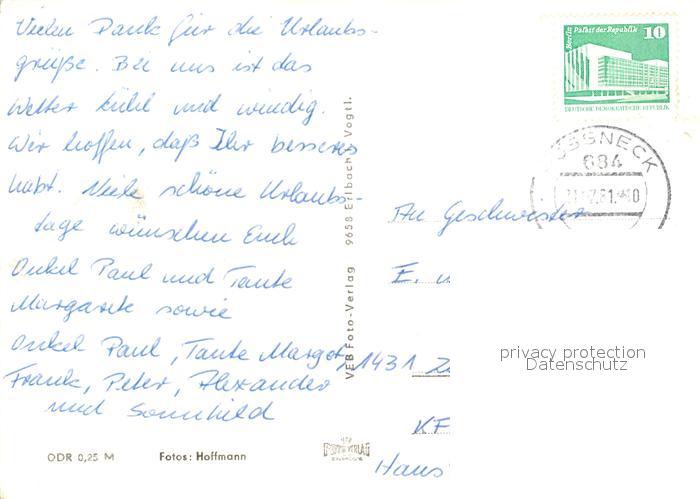 Vielen Dank für die Urlaubs-
grüße. Bei uns ist das
Wetter kühl und windig.
Wir hoffen, daß Ihr besseres
habt. Viele schöne Urlaubs-
tage wünschen Euch
Onkel Paul und Tante
Margarete sowie
Onkel Paul, Tante Margot,
Frank, Peter, Alexander
und Sonnhild
ODR 0,25 M
Fotos: Hoffmann
VEB Foto-Verlag 9658 Erlbach i. Vogtl.
Berlin Palast der Republik
10
DEUTSCHE DEMOKRATISCHE REPUBLIK
SSNECK
684
An Geschwister
E.
1431
KF
Haus
privacy protection
Datenschutz